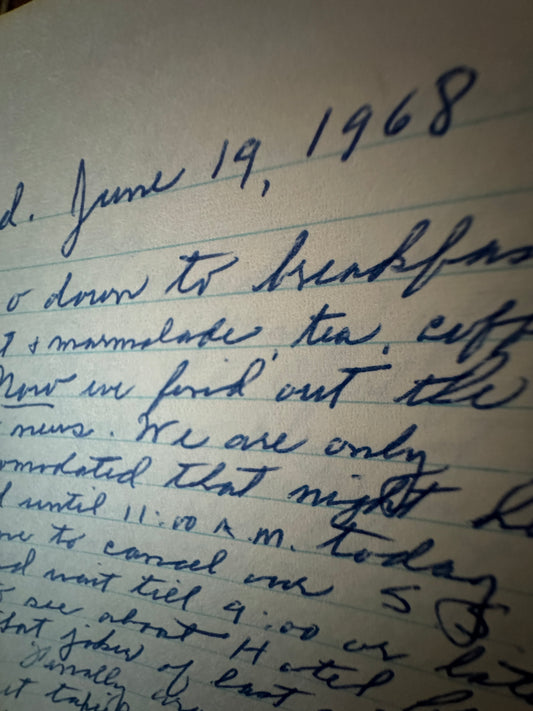 d. June 19, 1968
o down to breakfas
t + marmalade, tea, coff
Now we find out the
news. We are only
ommodated that night h
d until 11:00 A.M. today
me to cancel our 5
nd wait till 9:00 or late
o see about Hotel
that joker of last
Finally